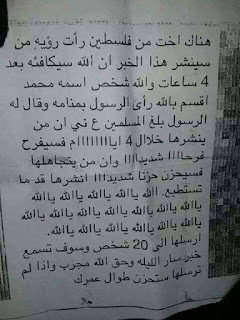 هناك اخت من فلسطين رأت رؤية من
سينشر هذا الخبر ان الله سيكافئه بعد
4 ساعات والله شخص اسمه محمد
اقسم بالله رأى الرسول بمنامه وقال له
الرسول بلغ المسلمين ع ني ان من
ينشرها خلال 4 اياااااااام فسيفرح
فرحاااا شديدااا وان من يتجاهلها
فسيحزن حزنا شديدااا انشرها قد ما
تستطيع. الله ياالله ياالله ياالله ياالله
ياالله ياالله ياالله ياالله ياالله ياالله
ياالله ياالله ياالله ياالله ياالله.
ارسلها الى 20 شخص وسوف تسمع
خبر سار الليله وحق الله مجرب واذا لم
ترسلها ستحزن طوال عمرك